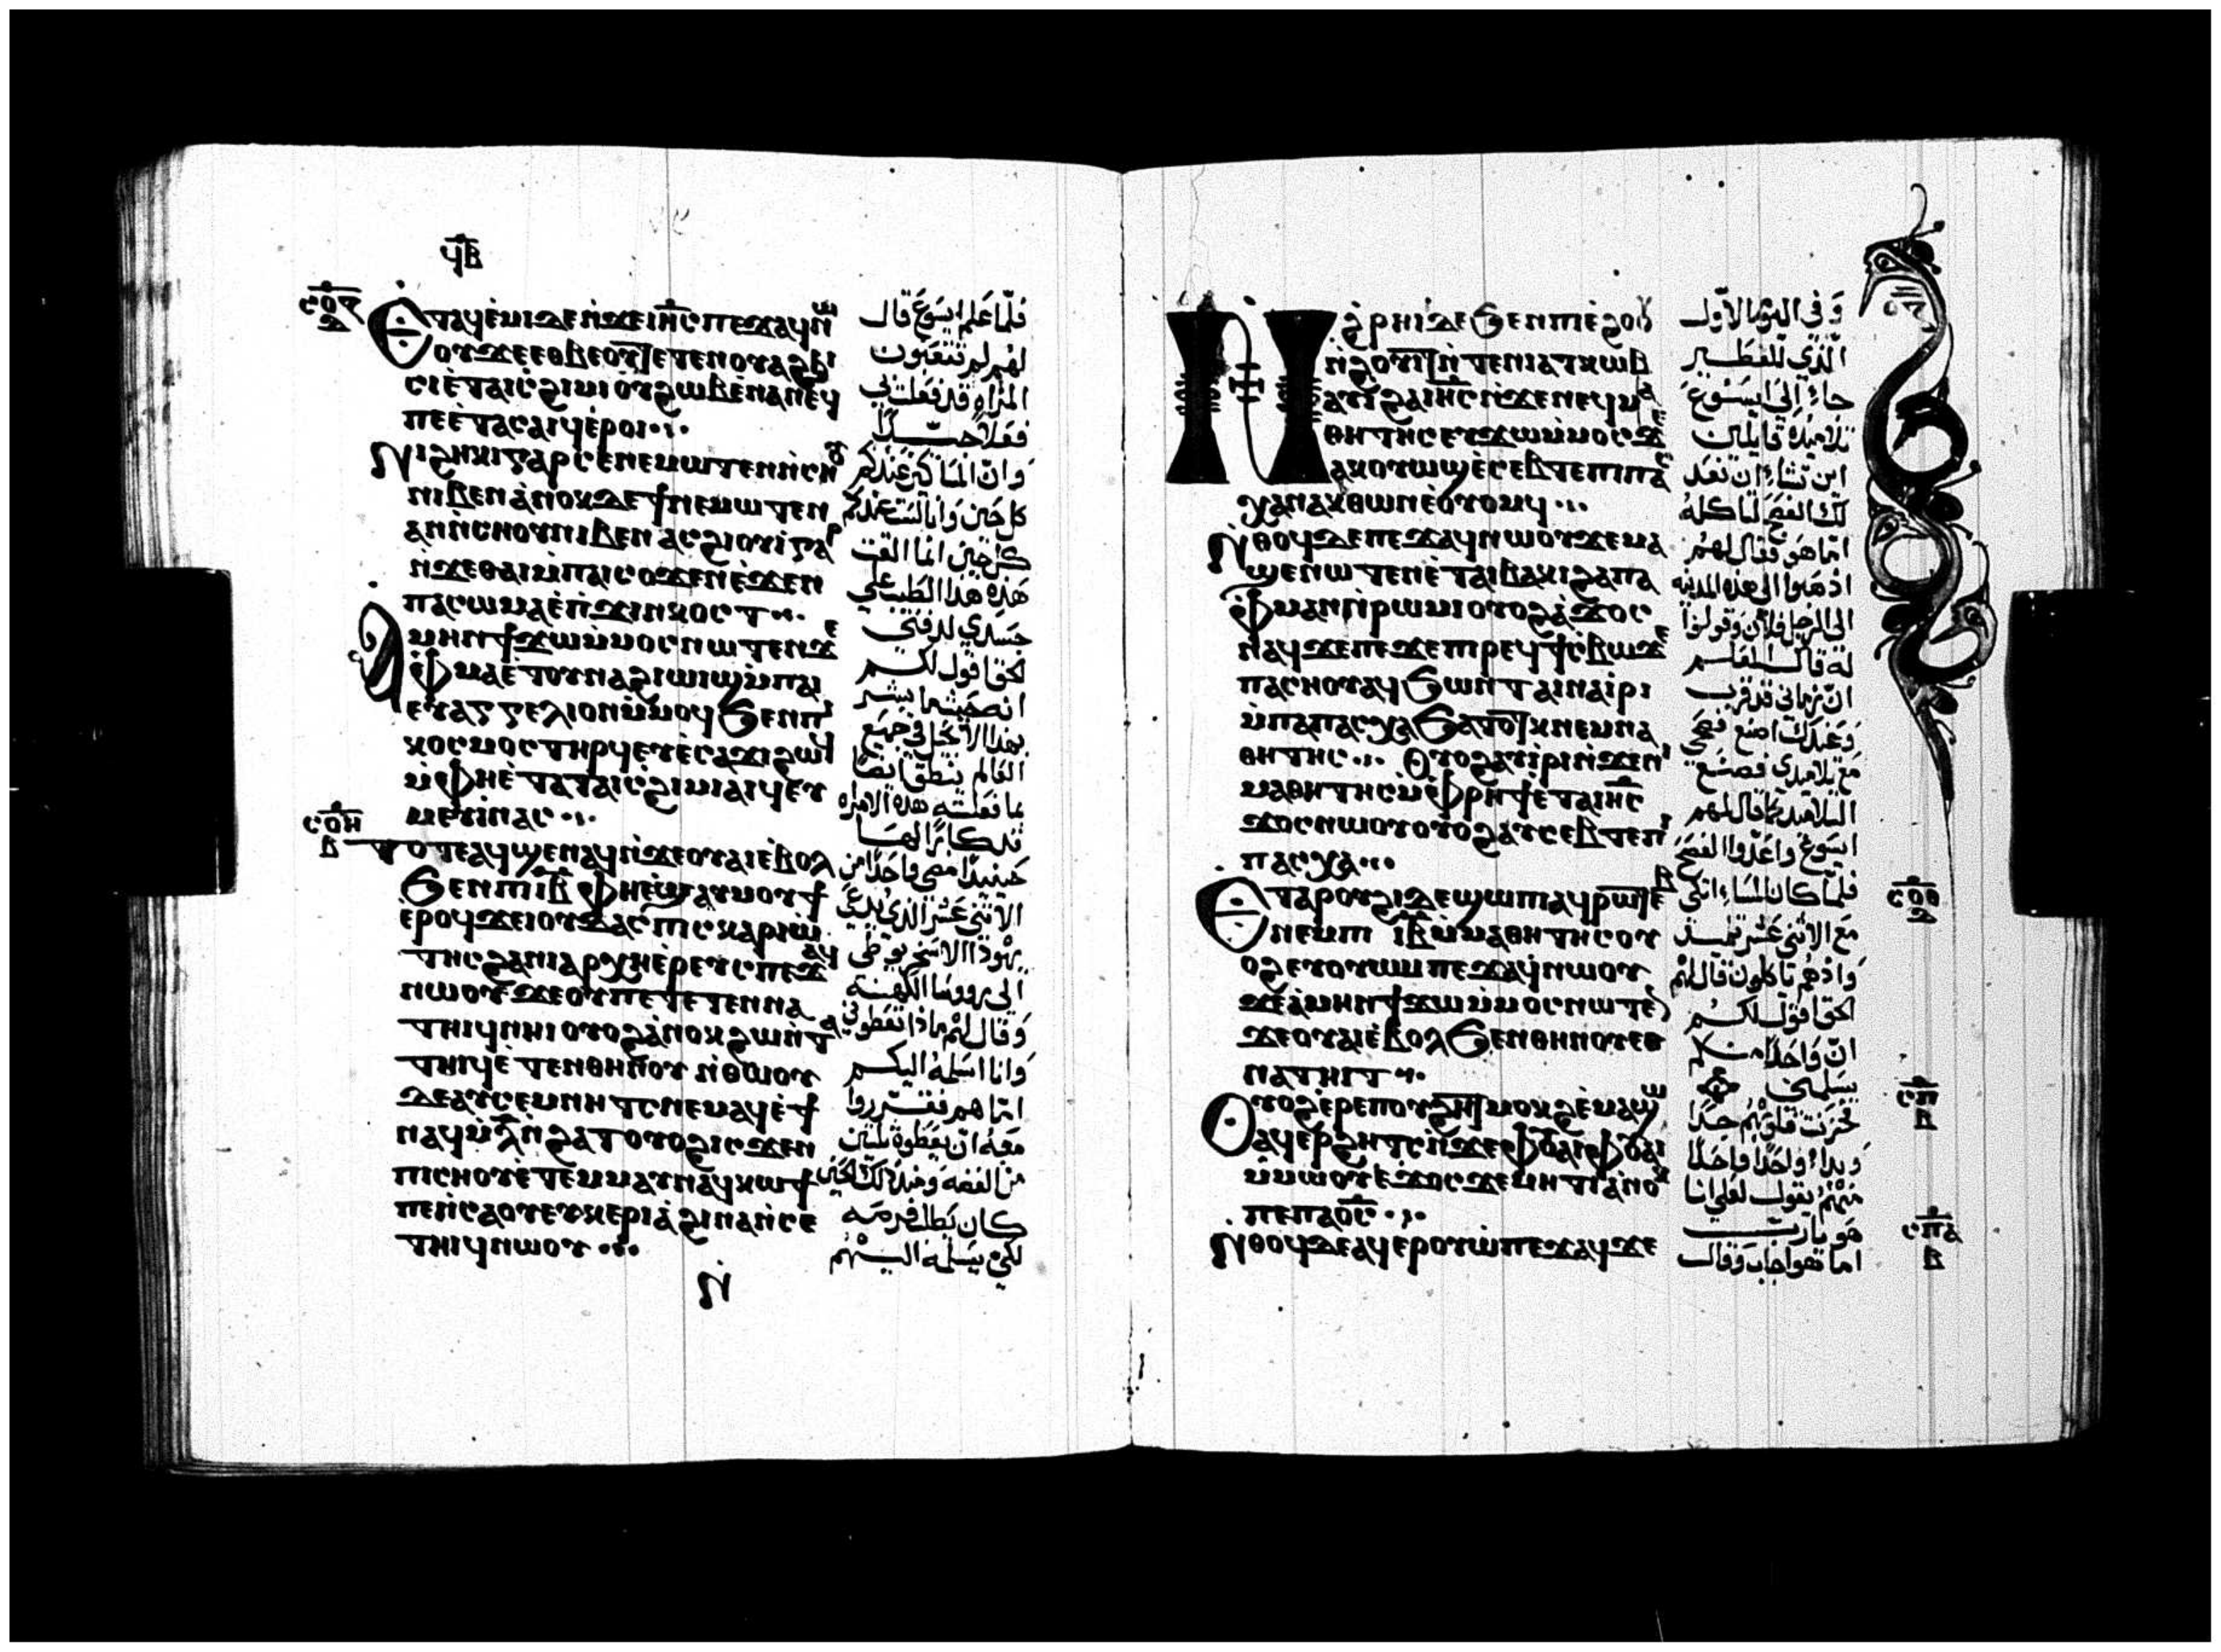 ϥⲃ
ⲥⲟⲍ
ⲇ
Ⲉⲧⲁϥⲉ̀ⲙⲓⲇⲉⲛ̀ϫⲉⲓⲏ̅ⲥ̅ⲡⲉϫⲁϥⲛ̀ⲱ
ⲟⲩϫⲉⲉⲑⲃⲉⲟⲩⲧⲉⲧⲉⲛⲟⲩⲁϩϧⲓ
ⲥⲓⲉ̀ⲧⲁⲓⲥ̀ϩⲓⲙⲓⲟⲩϩⲱⲃⲉ̀ⲛⲁⲛⲉϥ
ⲡⲉⲉ̀ⲧⲁⲥⲁⲓϥⲉ̀ⲣⲟⲓ
Ⲛⲓϩⲏⲕⲓⲅⲁⲣⲥⲉⲛⲉⲙⲱⲧⲉⲛⲛ̀ⲥⲏⲟⲩ
ⲛⲓⲃⲉⲛⲁ̀ⲛⲟⲕⲇⲉϯⲛⲉⲙⲱⲧⲉⲛ
ⲁⲛⲛ̀ⲥⲏⲟⲩⲛⲓⲃⲉⲛⲁⲥϩⲓⲟⲩⲓ̀ⲅⲁⲣ
ⲛ̀ϫⲉⲑⲁⲓⲙ̀ⲡⲁⲓⲥⲟϫⲉⲛⲉ̀ϫⲉⲛ
ⲡⲁⲥⲱⲙⲁⲉ̀ⲡ̀ϫⲓⲛⲕⲟⲥⲧ
Ⲁⲙⲏⲛϯϫⲱⲙ̀ⲙⲟⲥⲛⲱⲧⲉⲛϫⲉ
ⲫ̀ⲙⲁⲉ̀ⲧⲟⲩⲛⲁϩⲓⲱⲓϣⲙ̀ⲡⲁⲓ
ⲉⲩⲁⲅⲅⲉⲗⲓⲟⲛⲙ̀ⲙⲟϥϧⲉⲛⲡⲓ
ⲕⲟⲥⲙⲟⲥⲧⲏⲣϥⲉⲩⲉ̀ⲥⲁϫⲓϩⲱϥ
ⲙ̀ⲫⲏⲉ̀ⲧⲁⲧⲁⲓⲥ̀ϩⲓⲙⲓⲁⲓϥⲉⲩ
ⲙⲉⲩⲓ̀ⲛⲁⲥ
ⲥⲟⲏ
ⲃ
Ⲧⲟⲧⲉⲁϥϣⲉⲛⲁϥⲛ̀ϫⲉⲟⲩⲁⲓⲉ̀ⲃⲟⲗ
ϧⲉⲛⲡⲓⲓ̅ⲃ̅ⲫⲏⲉ̀ϣⲁⲩⲙⲟⲩϯ
ⲉ̀ⲣⲟϥϫⲉⲓⲟⲩⲇⲁⲥⲡⲓⲥⲕⲁⲣⲓⲱ̀
ⲧⲏⲥϩⲁⲛⲓⲁⲣⲭⲏⲉ̀ⲣⲉⲩⲥⲡⲉϫⲁϥ
ⲛⲱⲟⲩϫⲉⲟⲩⲡⲉⲧⲉⲧⲉⲛⲛⲁ
ⲧⲏⲓϥⲛⲏⲓⲟⲩⲟϩⲁ̀ⲛⲟⲕϩⲱⲛ̀ⲧⲁ
ⲧⲏⲓϥⲉ̀ⲧⲉⲛⲑⲏⲛⲟⲩⲛ̀ⲑⲱⲟⲩ
ⲇⲉⲁⲩⲥⲉⲙⲛⲏⲧⲥⲛⲉⲙⲁϥⲉ̀ϯ
ⲛⲁϥⲙ̀ⲗ̅ⲛ̀ϩⲁⲧⲟⲩⲟϩⲓⲥϫⲉⲛ
ⲡⲓⲥⲏⲟⲩⲉ̀ⲧⲉⲙⲙⲁⲩⲛⲁϥⲕⲱϯ
ⲡⲉⲛ̀ⲥⲁⲟⲩⲉⲩⲕⲉⲣⲓⲁ̀ϩⲓⲛⲁⲛ̀ⲥⲉ
ⲧⲏⲓϥⲛⲱⲟⲩ
ⲛ̀
فلمّا علم ايسوع قال
لهم لم تتعبون
المراه قد فعلت بي
فعلاً حسناً
وانّ المساكين عندكم
كل حين وانا لست عندكم
كل حين انما القت
هذه هذا الطيب على
جسدي لدفني
الحق اقول لكم
انه حيثما يبشر
بهذا الانجيل في جميع
العالم ينطق ايضاً
بما فعلته هذه الامراه
تذكاراً لها
حينيذٍ مضي واحداً من
الاثني عشر الذي يدعى
يهوذا الاسخريوطي
الى رووسا الكهنه
وقال لهم ماذا تعطوني
وانا اسلمه اليكم
امّا هم فقرروا
معه ان يعطوه ثلثين
من الفضه ومنذ ذلك الحين
كان يطلب فرصه
لكي يسلمه اليهم
Ⲛ̀ϩ̀ⲣⲏⲓⲇⲉϧⲉⲛⲡⲓⲉ̀ϩⲟⲟⲩ
ⲛ̀ϩⲟⲩⲓⲧⲛ̀ⲧⲉⲛⲓⲁⲧⲕⲱⲃ
ⲁⲩⲓ̀ϩⲁⲓⲏ̅ⲥ̅ⲛ̀ϫⲉⲛⲉϥⲙⲁ
ⲑⲏⲧⲏⲥⲉⲩϫⲱⲙ̀ⲙⲟⲥϫⲉ
ⲁⲕⲟⲩⲱϣⲉ̀ⲥⲉⲃⲧⲉⲡⲓⲡⲁⲥ
ⲭⲁⲛⲁⲕⲑⲱⲛⲉ̀ⲟⲩⲟⲙϥ
Ⲛ̀ⲑⲟϥⲇⲉⲡⲉϫⲁϥⲛⲱⲟⲩϫⲉⲙⲁ
ϣⲉⲛⲱⲧⲉⲛⲉ̀ⲧⲁⲓⲃⲁⲕⲓϩⲁⲡⲁ
ⲫ̀ⲙⲁⲛⲛ̀ⲣⲱⲙⲓⲟⲩⲟϩⲁ̀ϫⲟⲥ
ⲛⲁϥϫⲉⲡⲉϫⲉⲡⲓⲣⲉϥϯⲥ̀ⲃⲱϫⲉ
ⲡⲁⲥⲏⲟⲩⲁϥϧⲱⲛⲧⲁⲓⲛⲁⲓ̀ⲣⲓ
ⲙ̀ⲡⲁⲡⲁⲥⲭⲁϧⲁⲧⲟⲧⲕⲛⲉⲙⲛⲁ
ⲑⲏⲧⲏⲥ Ⲟⲩⲟϩⲁⲩⲓ̀ⲣⲓⲛ̀ϫⲉⲛⲓ
ⲙⲁⲑⲏⲧⲏⲥⲙ̀ⲫ̀ⲣⲏϯⲉ̀ⲧⲁⲓⲏ̅ⲥ̅
ϫⲟⲥⲛⲱⲟⲩⲟⲩⲟϩⲁⲩⲥⲉⲃⲧⲉⲡⲓ
ⲡⲁⲥⲭⲁ
Ⲉⲧⲁⲣⲟⲩϩⲓⲇⲉϣⲱⲡⲓⲁϥⲣⲱⲧⲉⲃ
ⲛⲉⲙⲡⲓⲓ̅ⲃ̅ⲙ̀ⲙⲁⲑⲏⲧⲏⲥⲟⲩ
ⲟϩⲉⲩⲟⲩⲱⲙⲡⲉϫⲁϥⲛⲱⲟⲩ
ϫⲉⲁ̀ⲙⲏⲛϯϫⲱⲙ̀ⲙⲟⲥⲛⲱⲧⲉ
ϫⲉⲟⲩⲁⲓⲉ̀ⲃⲟⲗϧⲉⲛⲑⲏⲛⲟⲩⲉⲑ
ⲛⲁⲧⲏⲓⲧ
Ⲟⲩⲟϩⲉ̀ⲣⲉⲡⲟⲩϩⲏⲧⲙⲟⲕϩⲉ̀ⲙⲁϣⲱ
ⲁϥⲉⲣϩⲏⲧⲥⲛ̀ϫⲉⲫⲟⲩⲁⲓⲫⲟⲩⲁⲓ
ⲙ̀ⲙⲱⲟⲩⲉ̀ϫⲟⲥϫⲉⲙⲏⲧⲓⲁ̀ⲛⲟⲕ
ⲡⲉⲡⲁⲟ̅ⲥ̅
Ⲛ̀ⲑⲟϥⲇⲉⲁϥⲉⲣⲟⲩⲱ̀ⲡⲉϫⲁϥϫⲉ
وفي اليوم الاوّل
الذي للفطير
جاء الى ايسوع
تلاميذه قايلين
اين تشاء ان نعد
لك الفصح لتاكله
امّا هو فقال لهم
اذهبوا الى هذه المدينه
الى الرجل فلان وقولوا
له قال المعلم
انّ زماني قد قرب
وعندك اصنع فصحي
مع تلاميذي فصنع
التلاميذ كما قال لهم
ايسوع واعدّوا الفصح
فلمّا كان المساء اتكى
مع الاثني عشر تلميذ
واذ هم ياكلون قال لهم
الحق اقول لكم
انّ واحداً منكم
يسلمني
فحزنت قلوبهم جداً
وبداء واحداً فواحداً
منهم يقول لعلي انا
هو يارب
اما هو اجاب وقال
ⲥⲟⲑ
ⲇ
ⲥⲡ
ⲃ
ⲥⲡⲁ
ⲃ